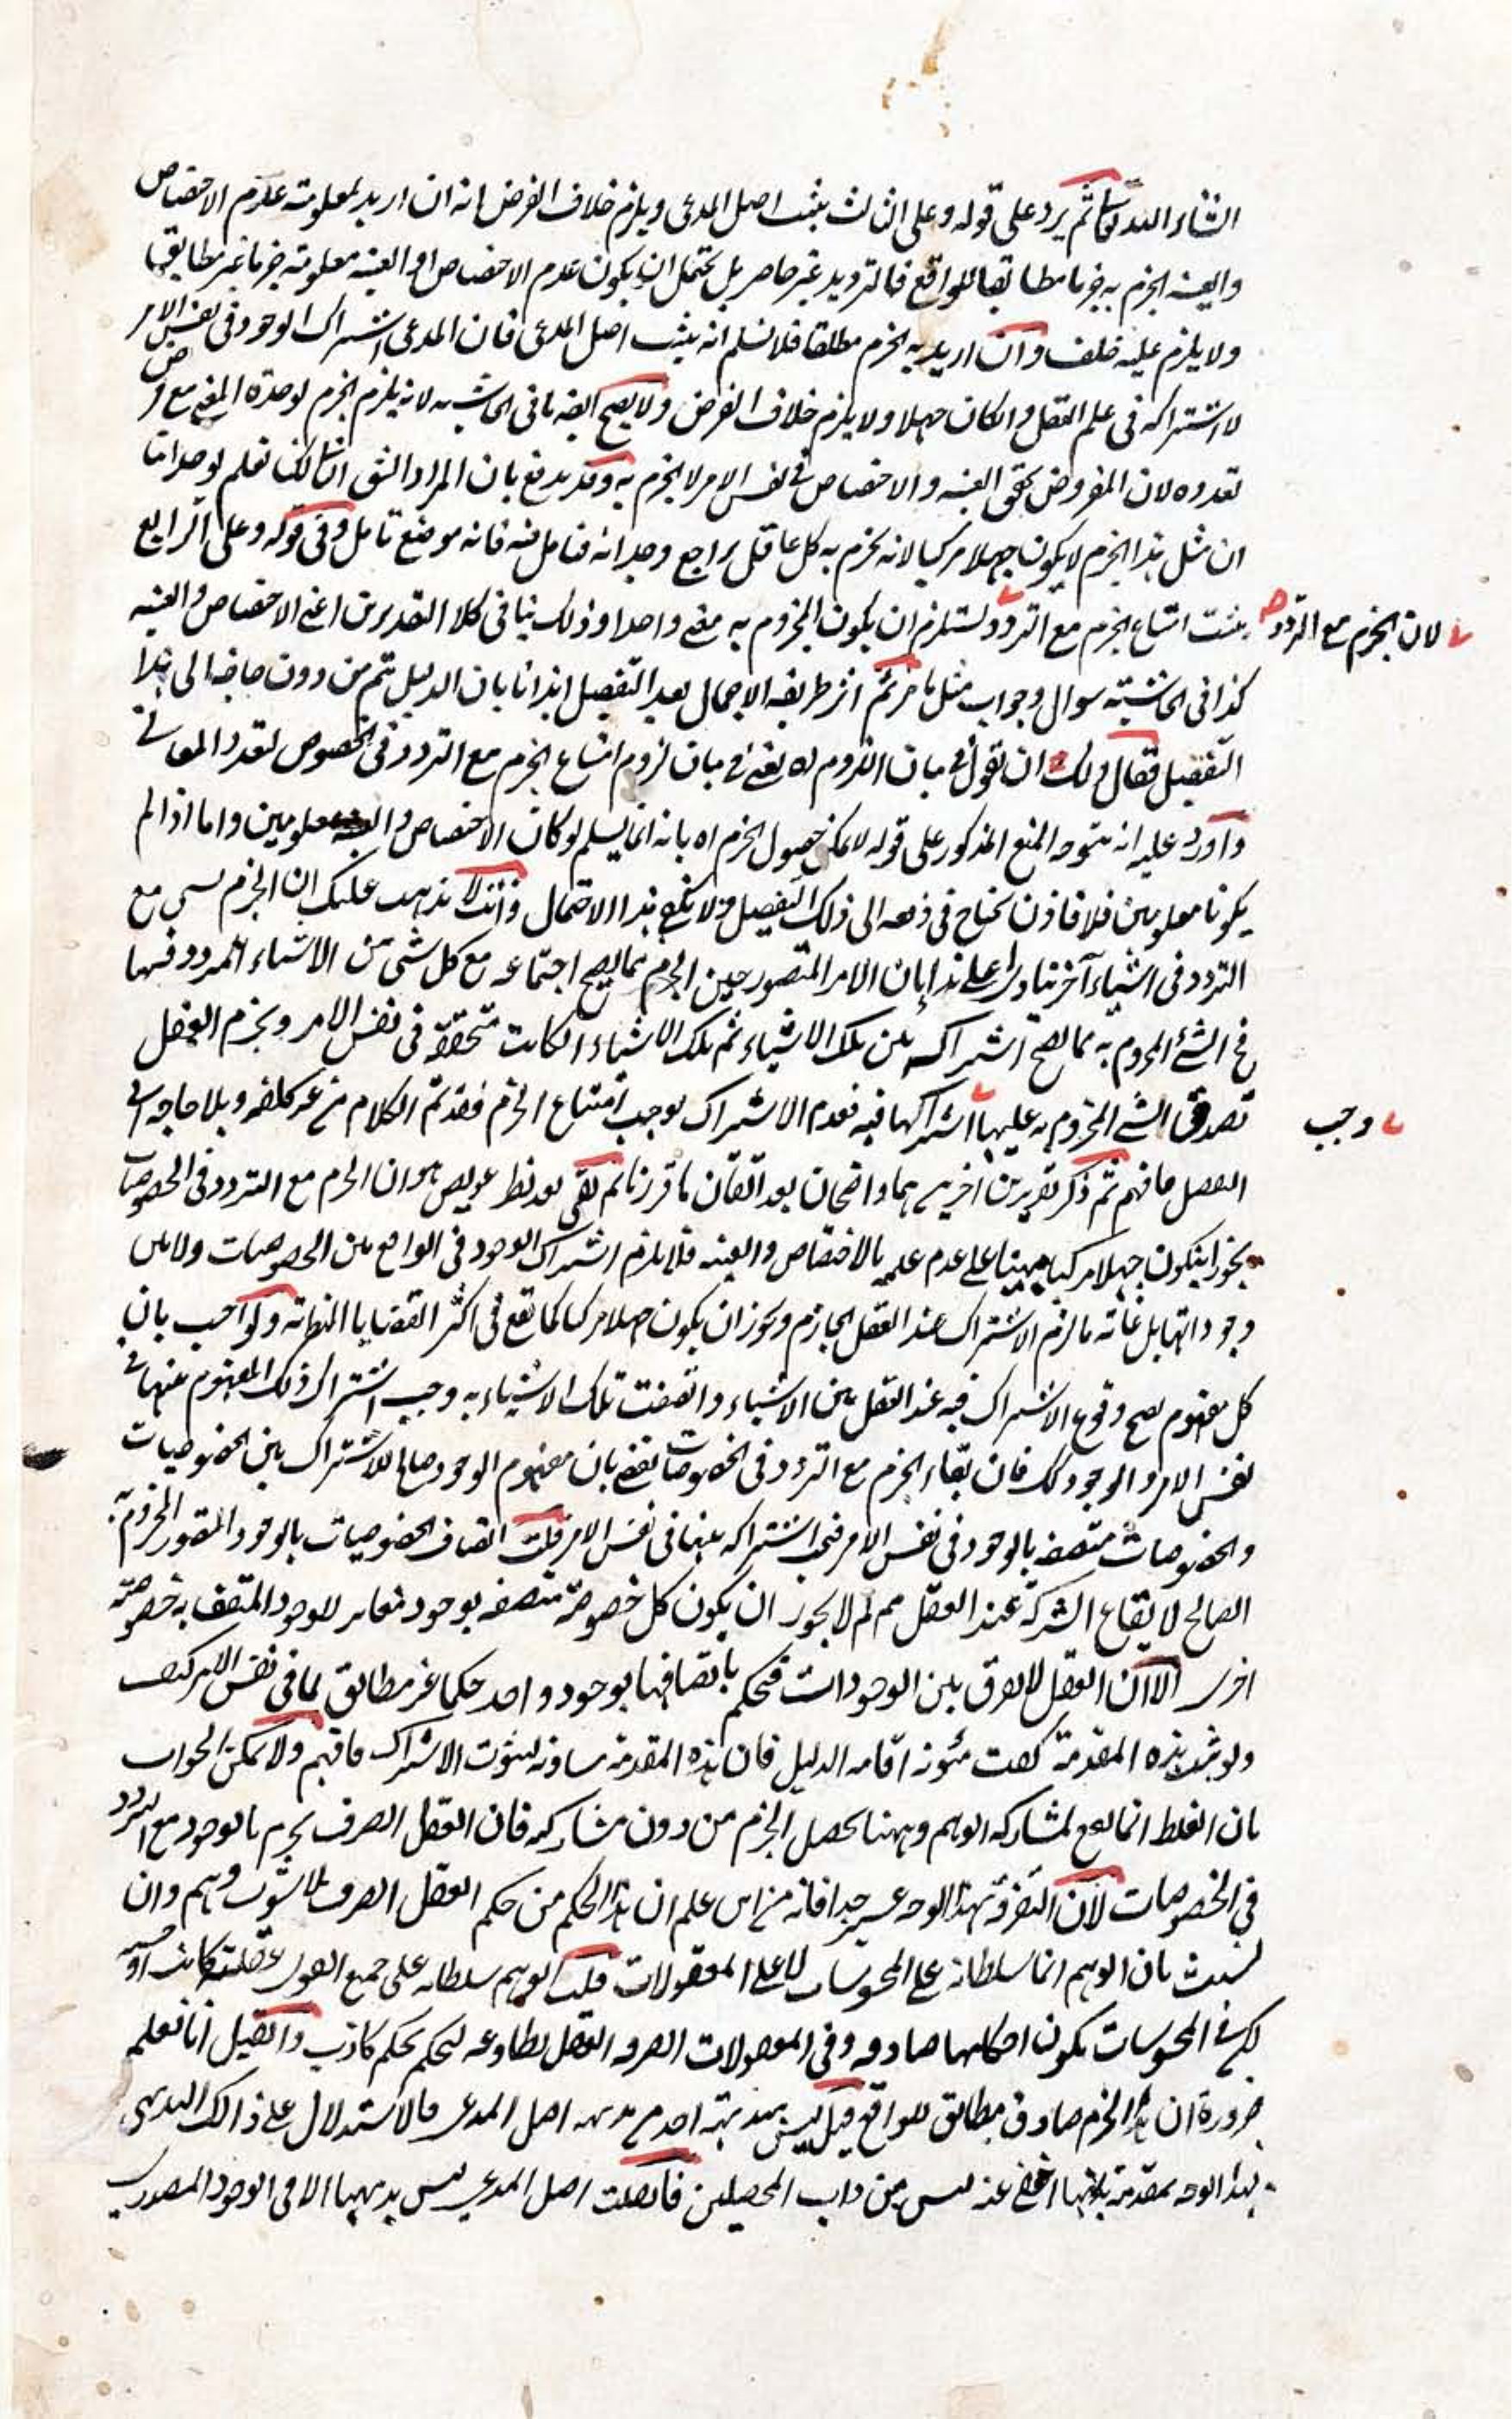 ثم يرد على قوله وعلى الثالث يثبت اصل المدعى ويلزم خلاف الفرض انه ان اريد بمعلومية عدم الاختصاص
والعينية الجزم به جزما مطابقا للواقع فالترديد غير حاصر بل يحتمل ان يكون عدم الاختصاص او العينية معلومية جزما غير مطابق
ولا يلزم عليه خلف وان اريد به الجزم مطلقا فلا نسلم انه يثبت اصل المدعى فان المدعى اشتراك الوجود فى نفس الامر
لا اشتراكه فى علم العقل وان كان جهلا ولا يلزم خلاف الفرض ولا يصح ايضا ما فى الحاشية لانه يلزم الجزم بوحدة المفهوم مع فرض
تعدده لان المفروض تحقق العينية والاختصاص فى نفس الامر لا الجزم به وقد يدفع بان المراد الشق الثانى لكن نعلم بوجداننا
ان مثل هذا الجزم لا يكون جهلا مركبا لانه يجزم به كل عاقل يراجع وجدانه فتامل فيه فانه موضع تامل وفى قوله وعلى الرابع
يثبت امتناع الجزم مع التردد يستلزم ان يكون المجزوم به معنى واحدا وذلك ينافى كلا التقديرين اعنى الاختصاص والعينية
لان الجزم مع التردد
كذا فى الحاشية سوال وجواب مثل ما مر ثم اثر طريقة الاجمال بعد التفصيل ايذانا بان الدليل تم من دون حاجة الى هذا
التفصيل فقال ولك ان تقول فى بيان اللزوم اه يعنى فى بيان لزوم امتناع الجزم مع التردد فى الخصوص لتعدد المعانى
واورد عليه انه يتوجه المنع المذكور على قوله لا يمكن حصول الجزم اه بانه انما يسلم لو كان الاختصاص والعينية معلومين واما اذا لم
يكونا معلومين فلا فاذن نحتاج فى دفعه الى ذلك التفصيل ولا يكفى هذا الاحتمال وانت لا يذهب عليك ان الجزم بشى مع
التردد فى اشياء آخر ينادى على هذا بان الامر المتصور حين الجزم مما يصح اجتماعه مع كل شى من الاشياء المردد فيها
فح الشئ المجزوم به مما يصح اشتراكه بين تلك الاشياء ثم تلك الاشياء ان كانت متحققة فى نفس الامر ويجزم العقل
تصدق الشئ المجزوم به عليها اشتراكها فيه فعدم الاشتراك يوجب امتناع الجزم فقد تم الكلام من غير كلفة وبلا حاجة الى
وجب
التفصيل فافهم ثم ذكر تقريرين اخرين هما واضحان بعد اتقان ما قررنا ثم بقى بعد نظر عويص هو ان الجزم مع التردد فى الخصوصيات
يجوز ان يكون جهلا مركبا مبنيا على عدم علمه بالاختصاص والعينية فلا يلزم اشتراك الوجود فى الواقع بين الخصوصيات ولا بين
وجوداتها بل غاية ما لزم الاشتراك عند العقل الجازم ويجوز ان يكون جهلا مركبا كما تقع فى اكثر القضايا النظرية ولو اجيب بان
كل مفهوم يصح وقوع الاشتراك فيه عند العقل بين الاشياء واتصفت تلك الاشياء به وجب اشتراك ذلك المفهوم عنها فى
نفس الامر والوجود كك فان بقاء الجزم مع التردد فى الخصوصيات يقضى بان مفهوم الوجود صالح للاشتراك بين الخصوصيات
والخصوصيات متصفة بالوجود فى نفس الامر فيجب اشتراكه بينها فى نفس الامر قلت اتصاف الخصوصيات بالوجود المتصور المجزوم به
الصالح لايقاع الشركة عند العقل مم لم لا يجوز ان يكون كل خصوصية متصفة بوجود مغاير للوجود المتصف به خصوصية
اخرى الا ان العقل لا يفرق بين الوجودات فيحكم باتصافها بوجود واحد حكما غير مطابق لما فى نفس الامر كيف
ولو ثبت هذه المقدمة كفت مئونة اقامة الدليل فان هذه المقدمة مساوية لثبوت الاشتراك فافهم ولا يمكن الجواب
بان الغلط انما يقع لمشاركة الوهم وههنا يحصل الجزم من دون مشاركه فان العقل الصرف يجزم بالوجود مع التردد
فى الخصوصيات لان التفرقة بهذا الوجه عسير جدا فانه من اين علم ان هذا الحكم من حكم العقل الصرف بلا شوب وهم وان
تشبث بان الوهم انما سلطانه على المحسوسات لا على المعقولات قلت الوهم سلطانه على جميع القوى عقلية كانت او حسية
لكن فى المحسوسات يكون احكامها صادقة وفى المعقولات الصرفة العقل يطاوعه ليحكم بحكم كاذب وان قيل انا نعلم
ضرورة ان هذا الجزم صادق مطابق للواقع قيل ليس بديهية اجدى من بديهة اصل المدعى فالاستدلال على ذلك البديهى
بهذا الوجه بمقدمة بداهتها اخفى عنه ليس من داب المحصلين فان قلت اصل المدعى ليس بديهيا الا فى الوجود المصدرى